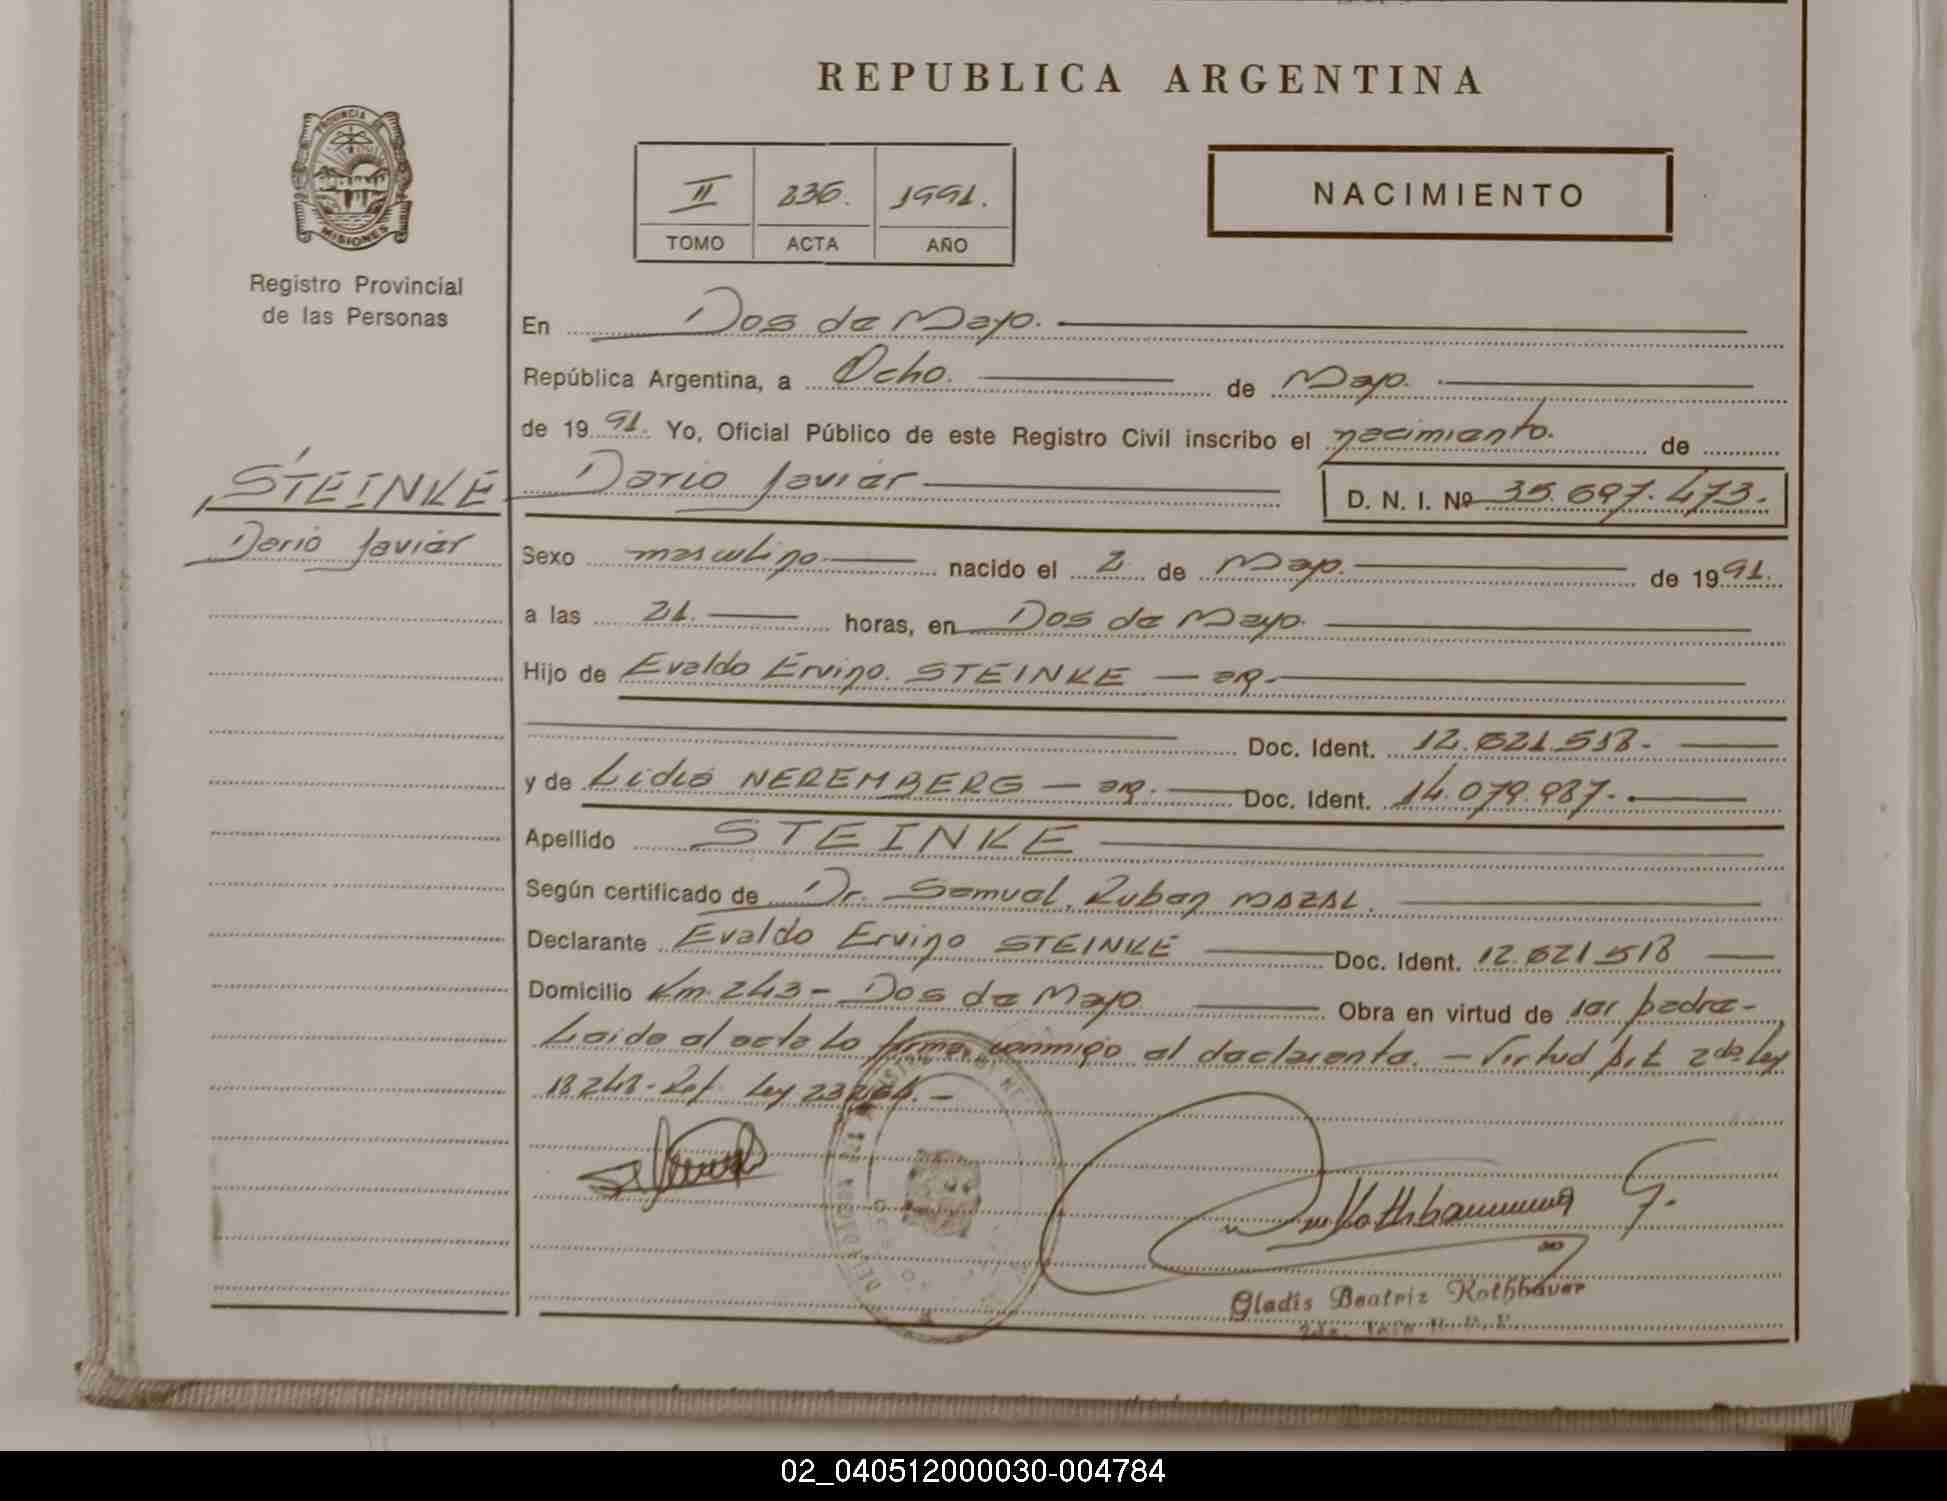 REPUBLICA ARGENTINA
PROVINCIA DE
MISIONES
Registro Provincial
de las Personas
II 236. 1991.
TOMO ACTA AÑO
NACIMIENTO
STEINKE
Dario Javier
En Dos de Mayo.
República Argentina, a Ocho. de Mayo.
de 1991. Yo, Oficial Público de este Registro Civil inscribo el nacimiento. de
Dario Javier D. N. I. Nº 35.697.473.
Sexo masculino nacido el 2 de Mayo. de 1991.
a las 21. horas, en Dos de Mayo.
Hijo de Evaldo Ervino. STEINKE — ar.
Doc. Ident. 12.621.518.
y de Lidia NEREMBERG — ar. Doc. Ident. 14.079.987.
Apellido STEINKE
Según certificado de Dr. Samuel, Ruben MAZAL.
Declarante Evaldo Ervino STEINKE Doc. Ident. 12.621.518
Domicilio Km. 243 - Dos de Mayo Obra en virtud de ser padre-
Leida el acta la firma conmigo el declarante. - Virtud Art. 2do. Ley
18248 - Ref. Ley
Gladis Beatriz Rothbauer
02_040512000030-004784